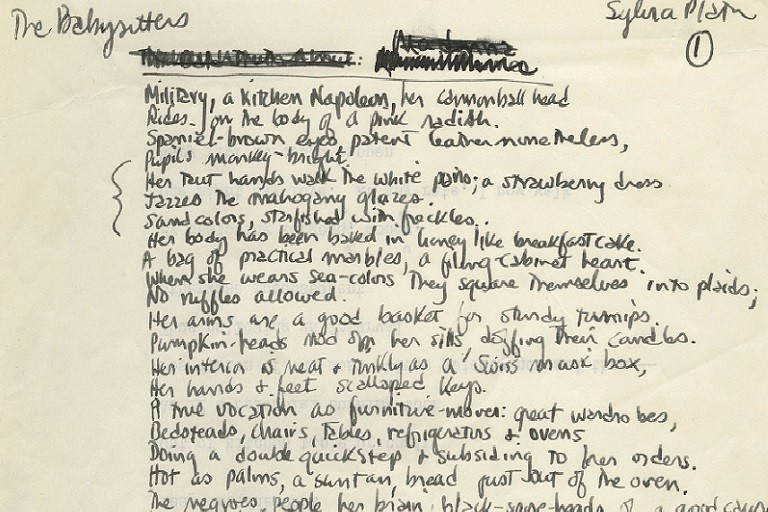 The Babysitters
Sylvia Plath
1
Military, a kitchen Napoleon, her cannonball head
Rides on the body of a pink radish.
Spaniel-brown eyes patent leather nonetheless,
Pupils monkey-bright.
Her taut hands walk the white pans; a strawberry dress
Jazzes the mahogany glazes.
Sand colors, starfished with freckles.
Her body has been baked in honey like breakfast cake.
A bag of practical marbles, a filing-cabinet heart.
When she wears sea-colors They square Themselves into plaids;
No ruffles allowed.
Her arms are a good basket for sturdy turnips.
Pumpkin-heads nod on her sills doffing Their candles.
Her interior is neat & tinkly as a Swiss music box,
Her hands & feet scalloped keys.
A true vocation as furniture-mover: great wardrobes,
Bedsteads, chairs, Tables, refrigerators & ovens
Doing a double quickstep & subsiding to her orders.
Hot as palms, a suntan, bread just out of the oven.
The negroes, people her brain, black heads of a good